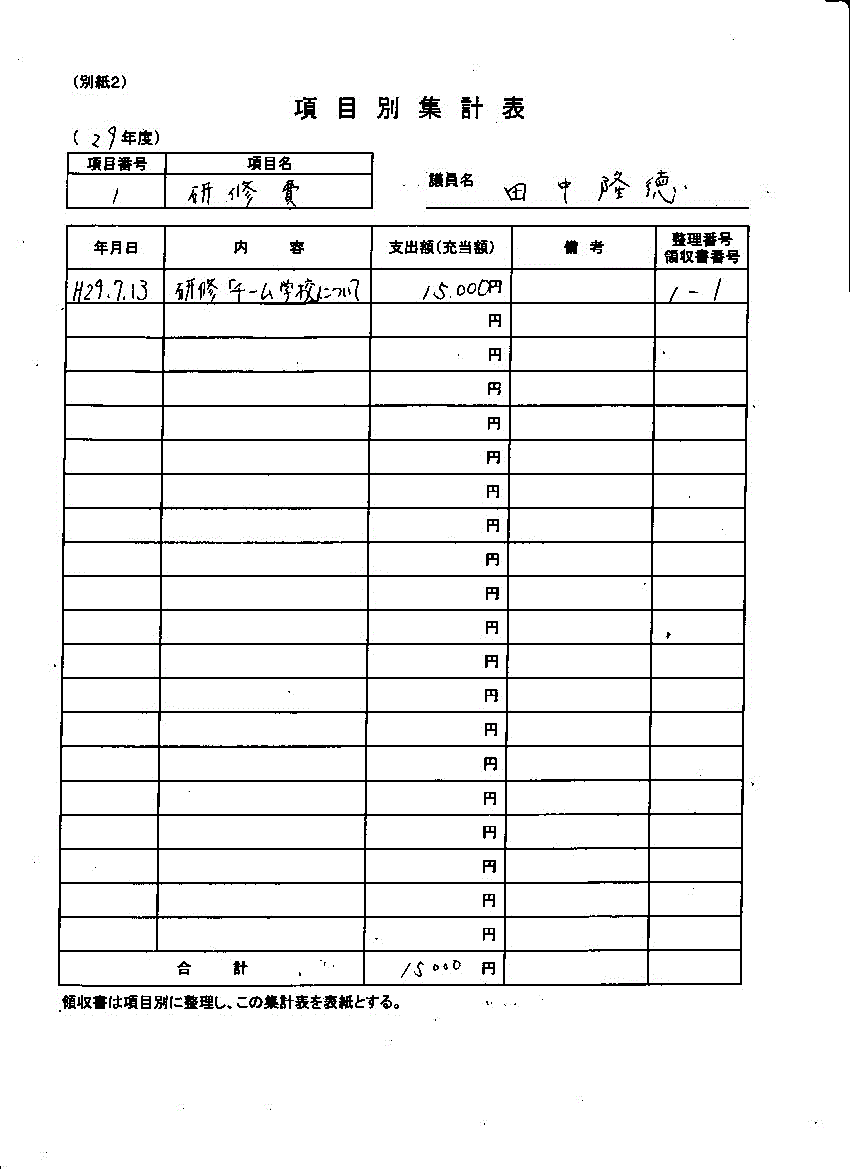 (別紙2)
項目別集計表
(29年度)
項目番号 項目名
1 研修費
議員名 田中隆徳
年月日 内容 支出額(充当額) 備考 整理番号 領収書番号
H29.7.13 研修「チーム学校」について 15.000円 1-1
円
円
円
円
円
円
円
円
円
円
円
円
円
円
円
円
円
円
円
合計 15000円
領収書は項目別に整理し、この集計表を表紙とする。